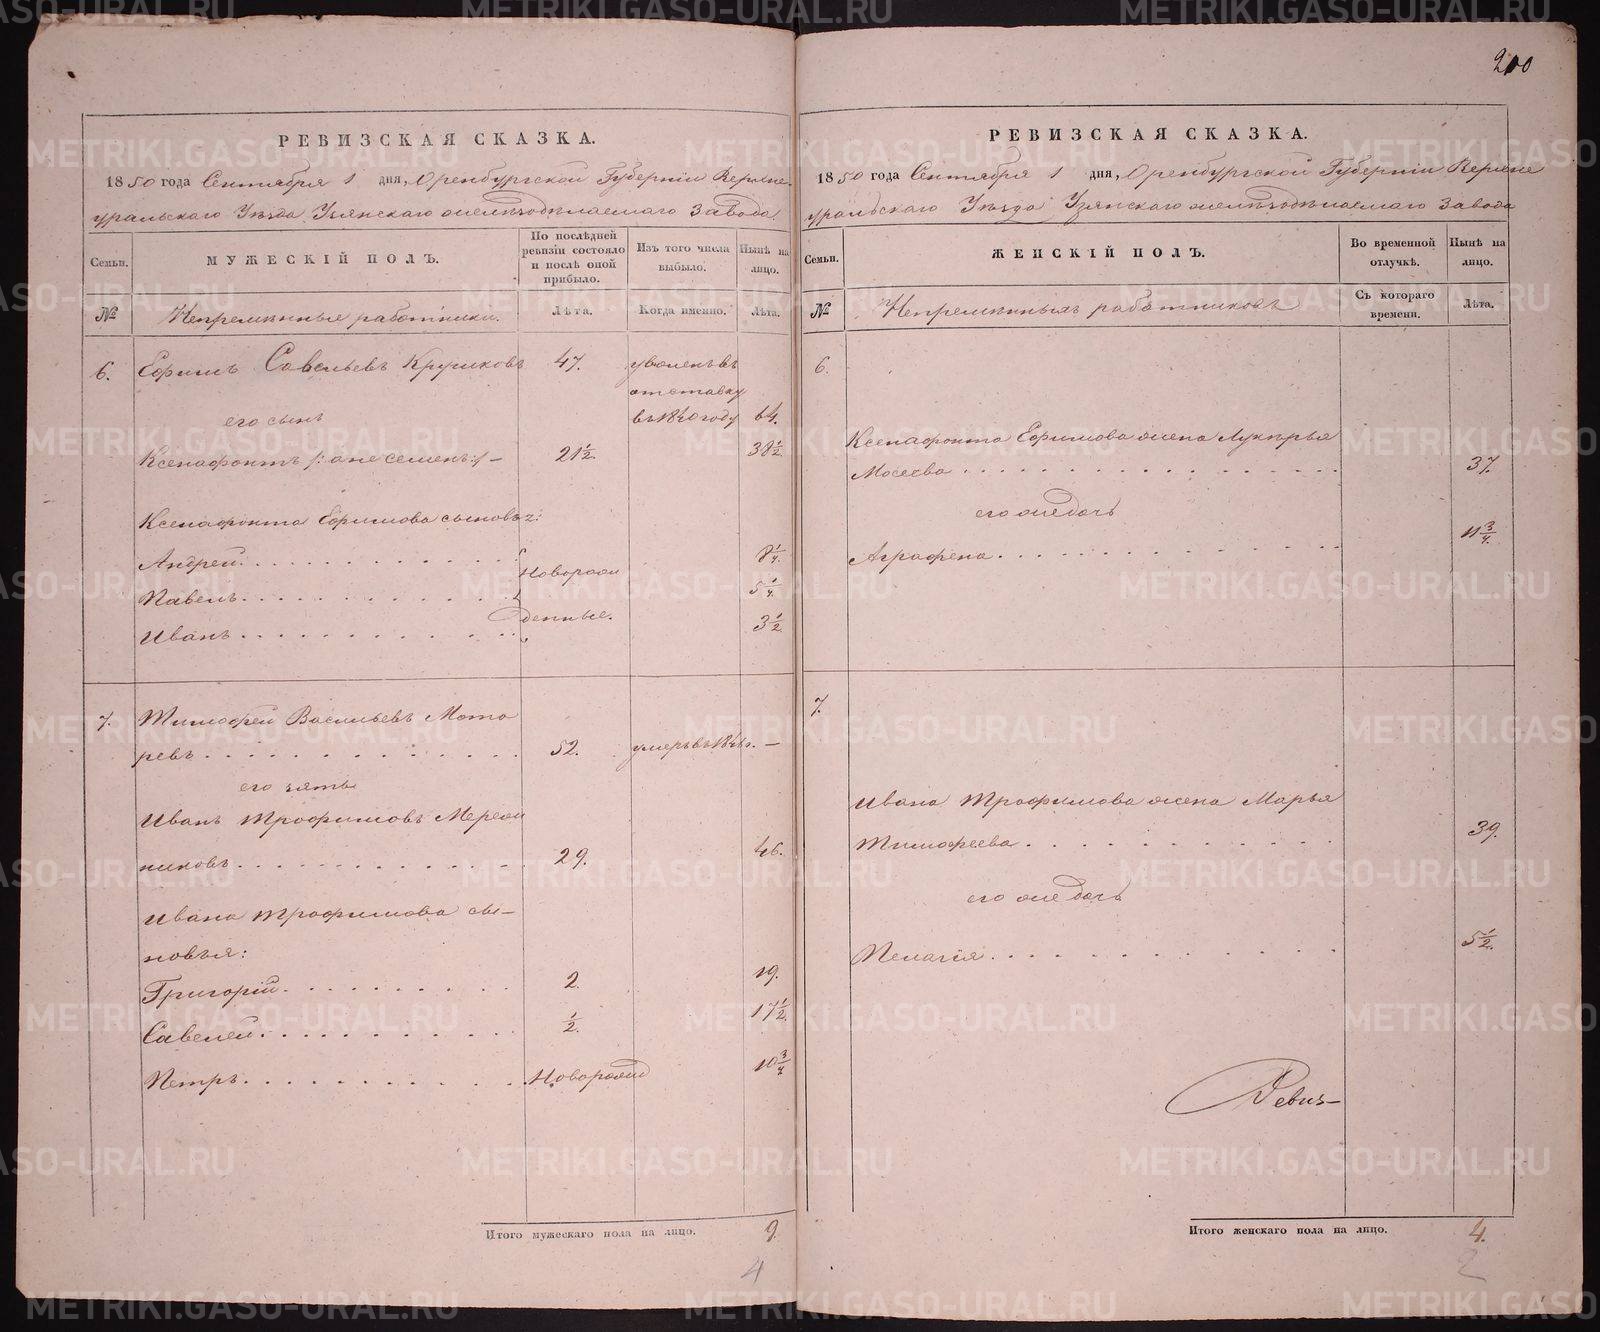 200
РЕВИЗСКАЯ СКАЗКА.
1850 года Сентября 1 дня, Оренбургской Губернiи Верхне-
уральскаго Уѣзда Узянскаго желѣзодѣлаемаго Завода
Семьи.
МУЖЕСКIЙ ПОЛЪ.
По послѣдней
ревизiи состояло
и послѣ оной
прибыло.
Изъ того числа
выбыло.
Нынѣ на
лицо.
№
Непремѣнные работники.
Лѣта.
Когда именно.
Лѣта.
6. Ефимъ Савельевъ Крушковъ 47. уволенъ въ
отставку
его сынъ въ 1840 году 64.
Ксенафонтъ /: а не Семенъ :/ — 21½ 38½
Ксенафонта Ефимова сыновья:
Андрей 8¼
Новорож
Павелъ 5¼
денные.
Иванъ 3½
7. Тимофей Васильевъ Мота
ревъ 52. умеръ въ 184 г. —
его зять
Иванъ Трофимовъ Мереж
никовъ 29. 46.
Ивана Трофимова сы—
новья:
Григорiй 2. 19.
Савелей ½ 17½
Петръ Новорожд 10¾
Итого мужескаго пола на лицо. 9.
4
РЕВИЗСКАЯ СКАЗКА.
1850 года Сентября 1 дня, Оренбургской Губернiи Верхне
уральскаго Уѣзда Узянскаго желѣзодѣлаемаго Завода
Семьи.
ЖЕНСКIЙ ПОЛЪ.
Во временной
отлучкѣ.
Нынѣ на
лицо.
№
Непремѣнныхъ работниковъ
Съ котораго
времени.
Лѣта.
6.
Ксенафонта Ефимова жена Лукерья
Мосеева 37.
его же дочь
Аграфена 11¾
7.
Ивана Трофимова жена Марья
Тимофеева 39.
его же дочь
Пелагiя 5½
Ревиз—
Итого женскаго пола на лицо. 4.
2
METRIKI.GASO-URAL.RU